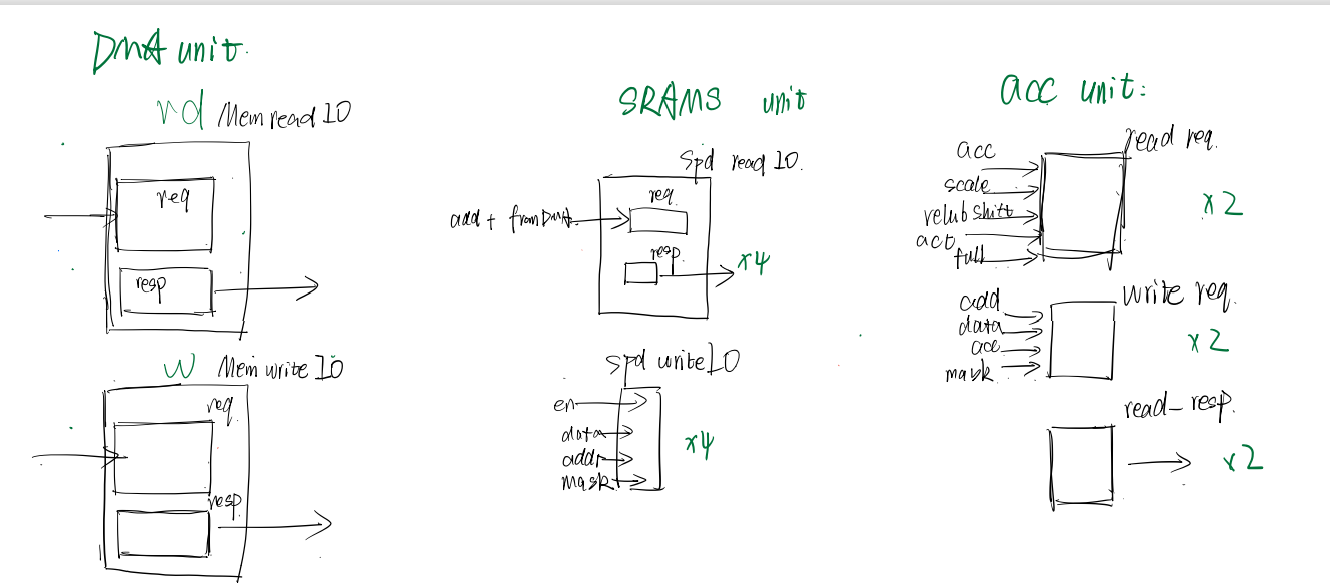 DMA unit.
rd Mem read IO
req
resp
W Mem write IO
req
resp
SRAMS unit
Spd read IO.
req.
add + from DMA.
resp.
x4
Spd write IO
en
data
addr
mask
x4
acc unit:
read req.
acc
scale
relub shift
act
full
x2
write req.
add
data
acc
mask
x2
read_resp.
x2